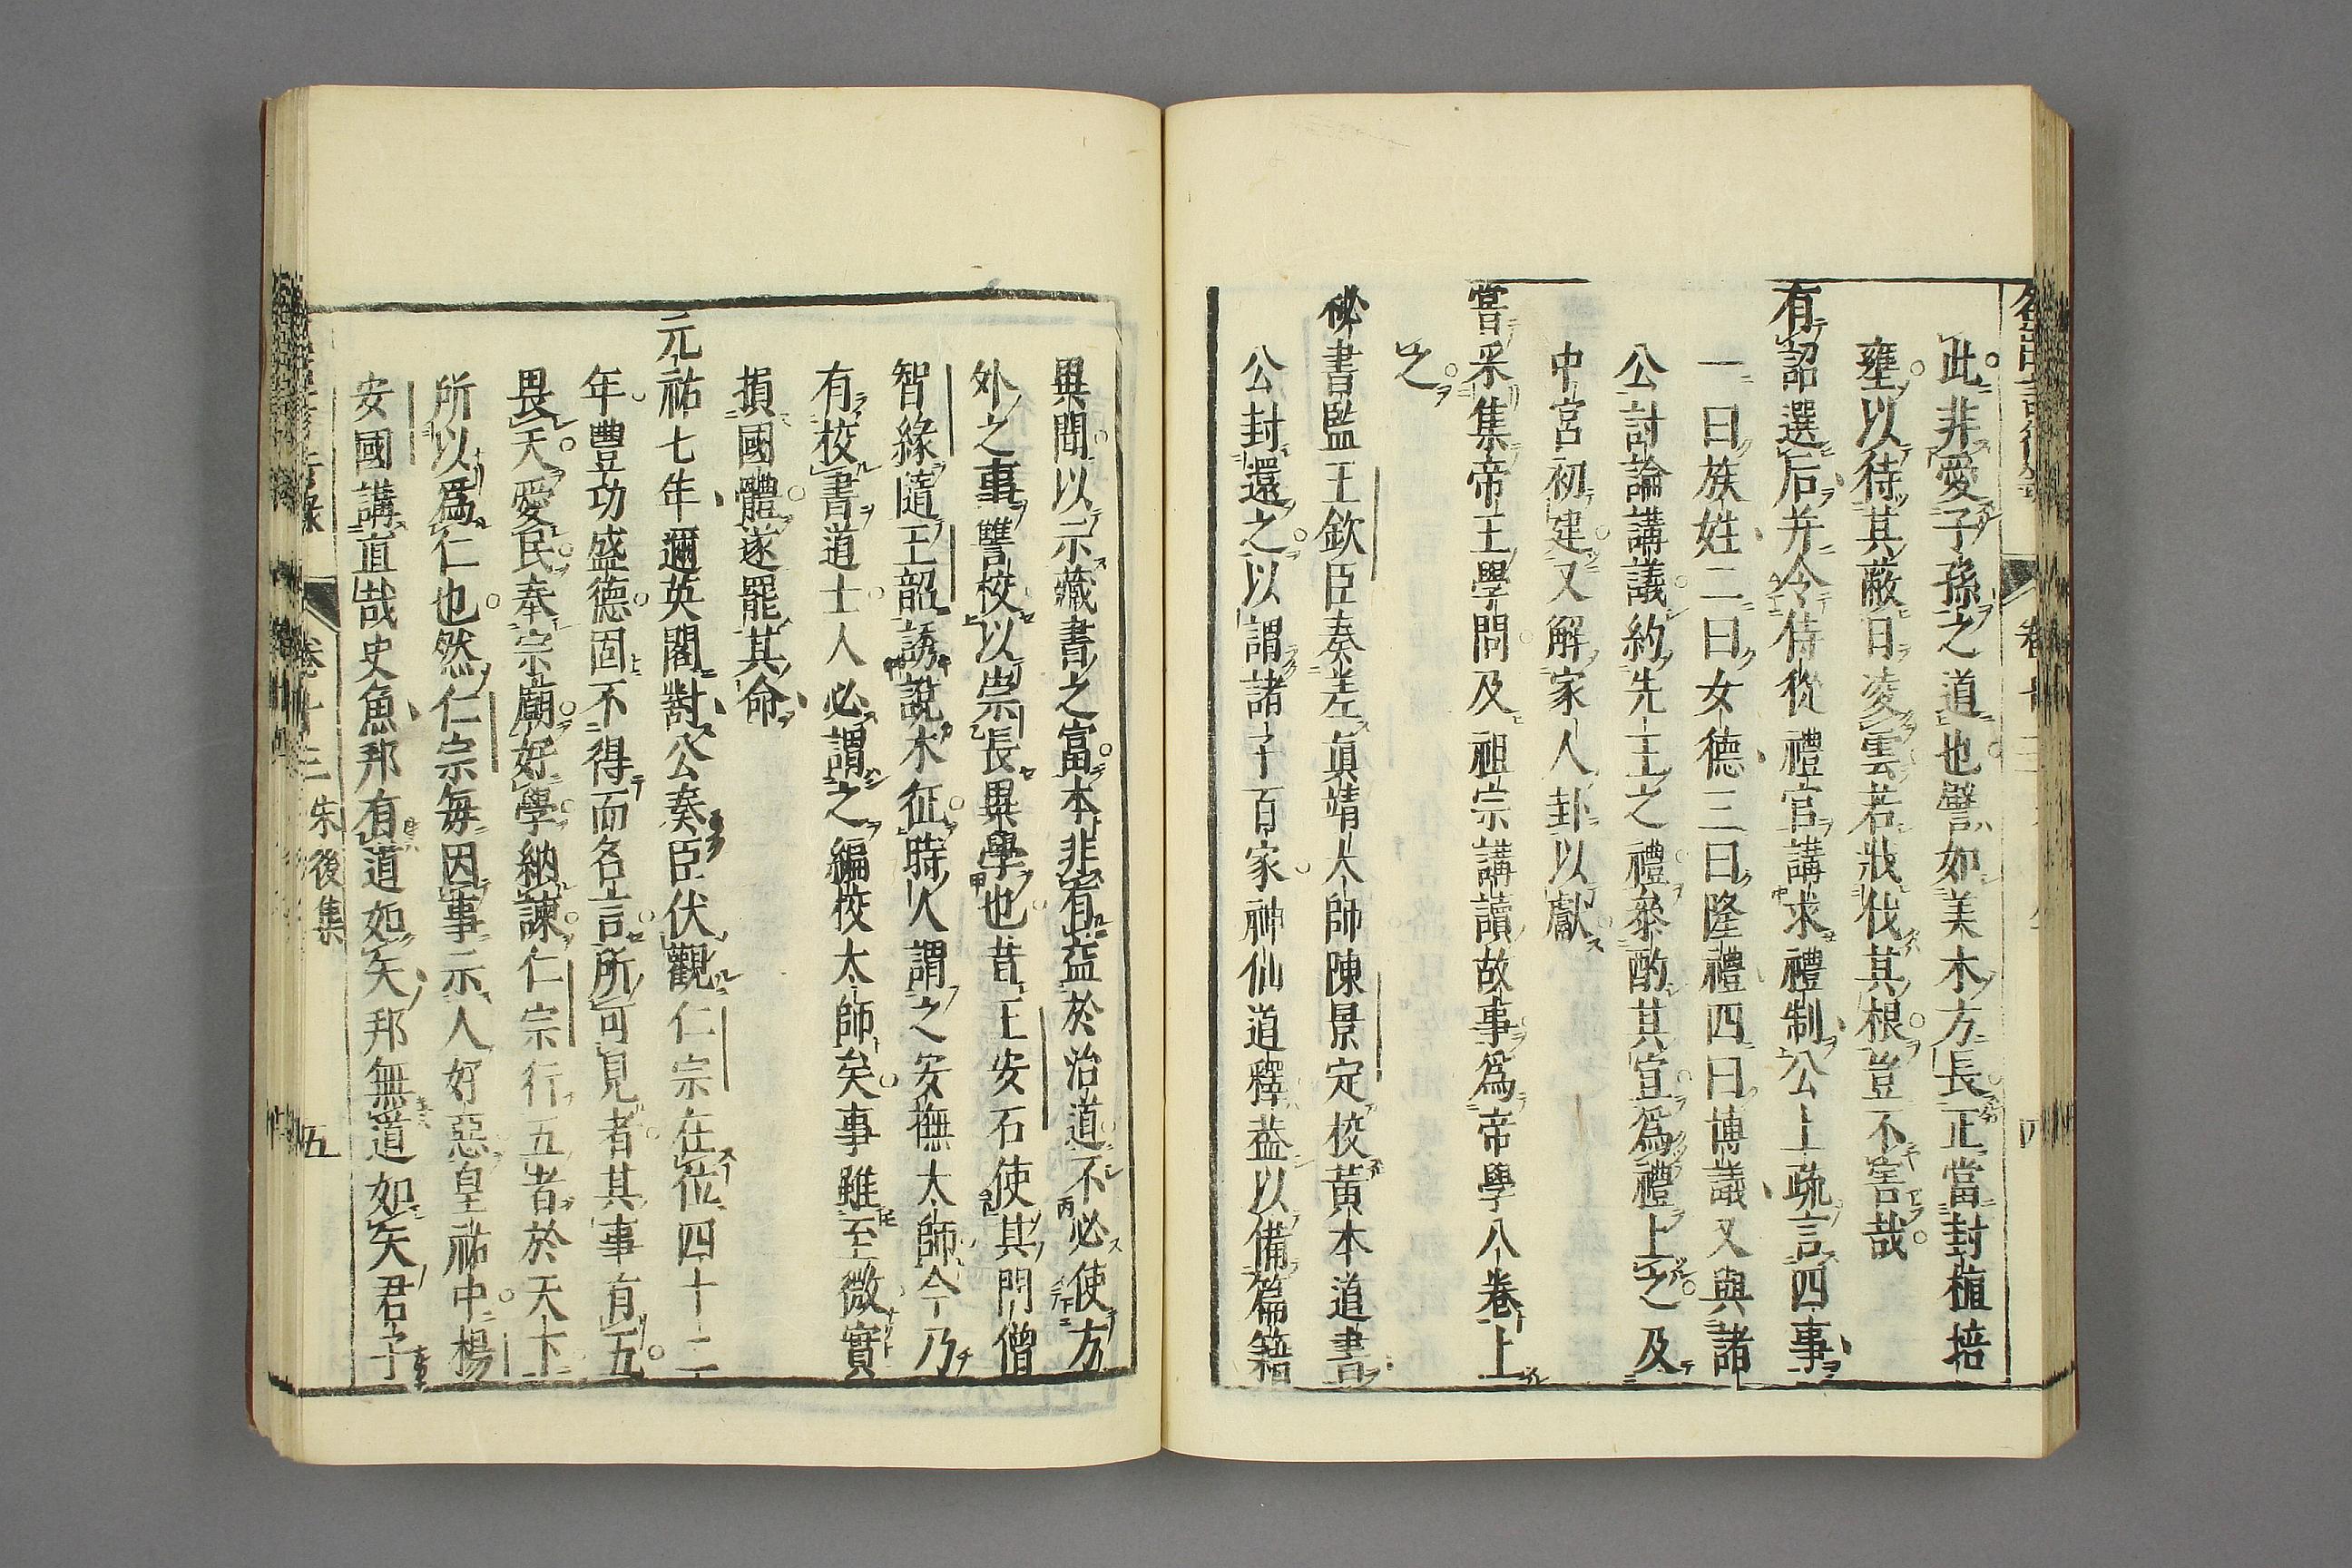 此非愛子孫之道也譬如美木方長正當封植培
壅以待其蔽日凌雲若戕伐其根豈不害哉
有詔選后并令侍從禮官講求禮制公上疏言四事
一曰族姓二曰女德三曰隆禮四曰博議又與諸
公討論講議約先王之禮參酌其宜爲禮上之及
中宮初建又解家人卦以獻
嘗采集帝王學問及祖宗講讀故事爲帝學八卷上
之
祕書監王欽臣奏差眞靖大師陳景定校黃本道書
公封還之以謂諸子百家神仙道釋葢以備篇籍
異聞以示藏書之富本非有益於治道不必使方
外之事讐校以崇長異學也昔王安石使其門僧
智緣隨王韶誘說木征時人謂之安撫大師今乃
有校書道士人必謂之編校大師矣事雖至微實
損國體遂罷其命
元祐七年邇英閣對公奏臣伏觀仁宗在位四十二
年豐功盛德固不得而名言所可見者其事有五
畏天愛民奉宗廟好學納諫仁宗行五者於天下
所以爲仁也然仁宗每因事示人好惡皇祐中楊
安國講直哉史魚邦有道如矢邦無道如矢君子
卷十三 朱後集
五